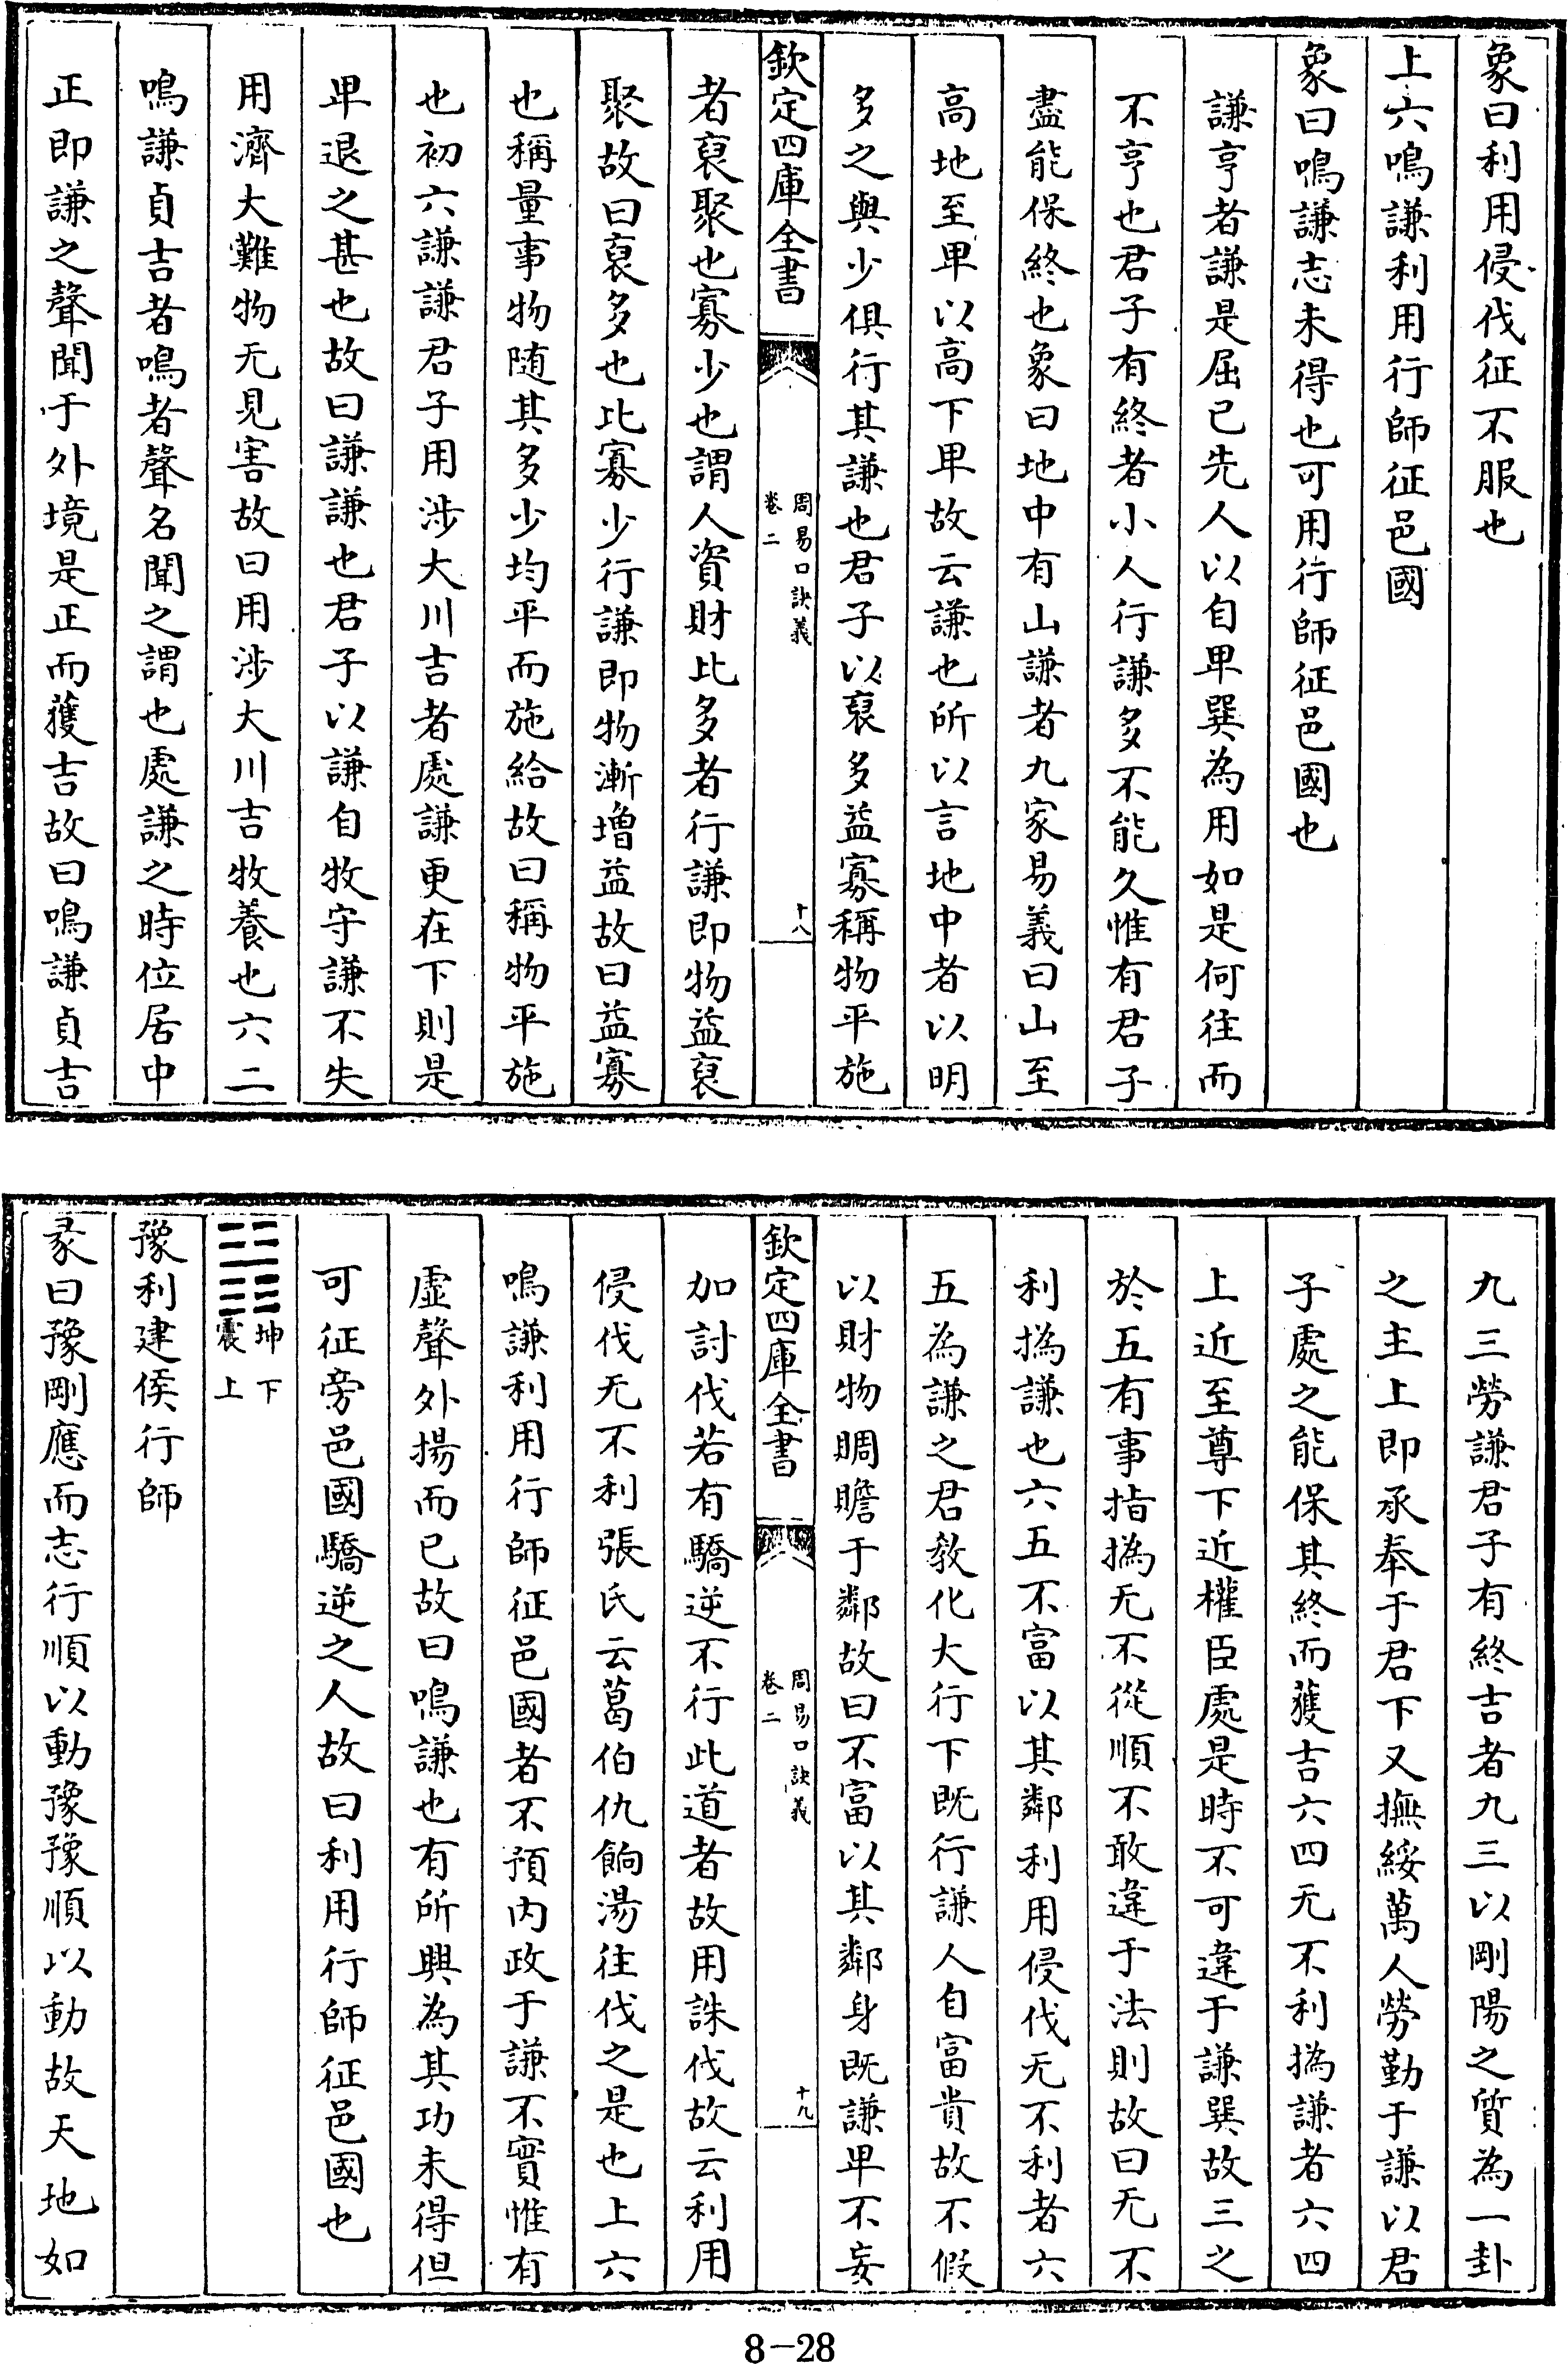 象曰利用侵伐征不服也
上六鳴謙利用行師征邑國
象曰鳴謙志未得也可用行師征邑國也
謙亨者謙是屈已先人以自卑巽為用如是何往而
不亨也君子有終者小人行謙多不能久惟有君子
盡能保終也象曰地中有山謙者九家易義曰山至
高地至卑以高下卑故云謙也所以言地中者以明
多之與少俱行其謙也君子以裒多益寡稱物平施
欽定四庫全書
周易口訣義
卷二
十八
者裒聚也寡少也謂人資財比多者行謙即物益裒
聚故曰裒多也比寡少行謙即物漸增益故曰益寡
也稱量事物随其多少均平而施給故曰稱物平施
也初六謙謙君子用涉大川吉者處謙更在下則是
卑退之甚也故曰謙謙也君子以謙自牧守謙不失
用濟大難物无見害故曰用涉大川吉牧養也六二
鳴謙貞吉者鳴者聲名聞之謂也處謙之時位居中
正即謙之聲聞于外境是正而獲吉故曰鳴謙貞吉
九三勞謙君子有終吉者九三以剛陽之質為一卦
之主上即承奉于君下又撫綏萬人勞勤于謙以君
子處之能保其終而獲吉六四无不利撝謙者六四
上近至尊下近權臣處是時不可違于謙巽故三之
於五有事指撝无不從順不敢違于法則故曰无不
利撝謙也六五不富以其鄰利用侵伐无不利者六
五為謙之君教化大行下既行謙人自富貴故不假
以財物賙贍于鄰故曰不富以其鄰身既謙卑不妄
欽定四庫全書
周易口訣義
卷二
十九
加討伐若有驕逆不行此道者故用誅伐故云利用
侵伐无不利張氏云葛伯仇餉湯往伐之是也上六
鳴謙利用行師征邑國者不預内政于謙不實惟有
虛聲外揚而已故曰鳴謙也有所興為其功未得但
可征旁邑國驕逆之人故曰利用行師征邑國也
坤下
震上
豫利建侯行師
彖曰豫剛應而志行順以動豫豫順以動故天地如
8-28